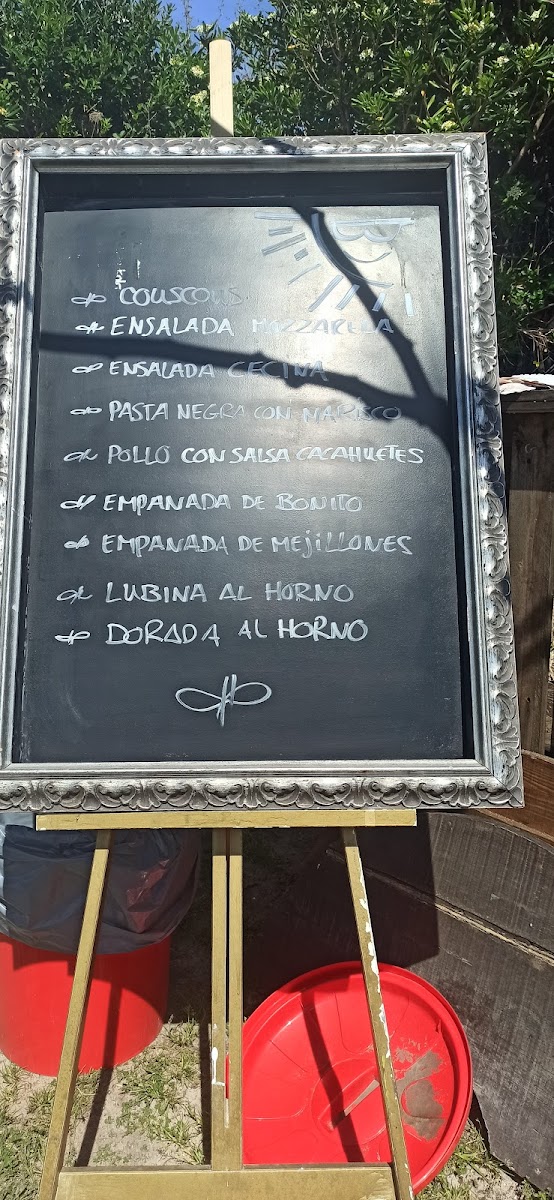 COUSCOUS
ENSALADA MOZZARELLA
ENSALADA CECINA
PASTA NEGRA CON MARISCO
POLLO CON SALSA CACAHUETES
EMPANADA DE BONITO
EMPANADA DE MEJILLONES
LUBINA AL HORNO
DORADA AL HORNO